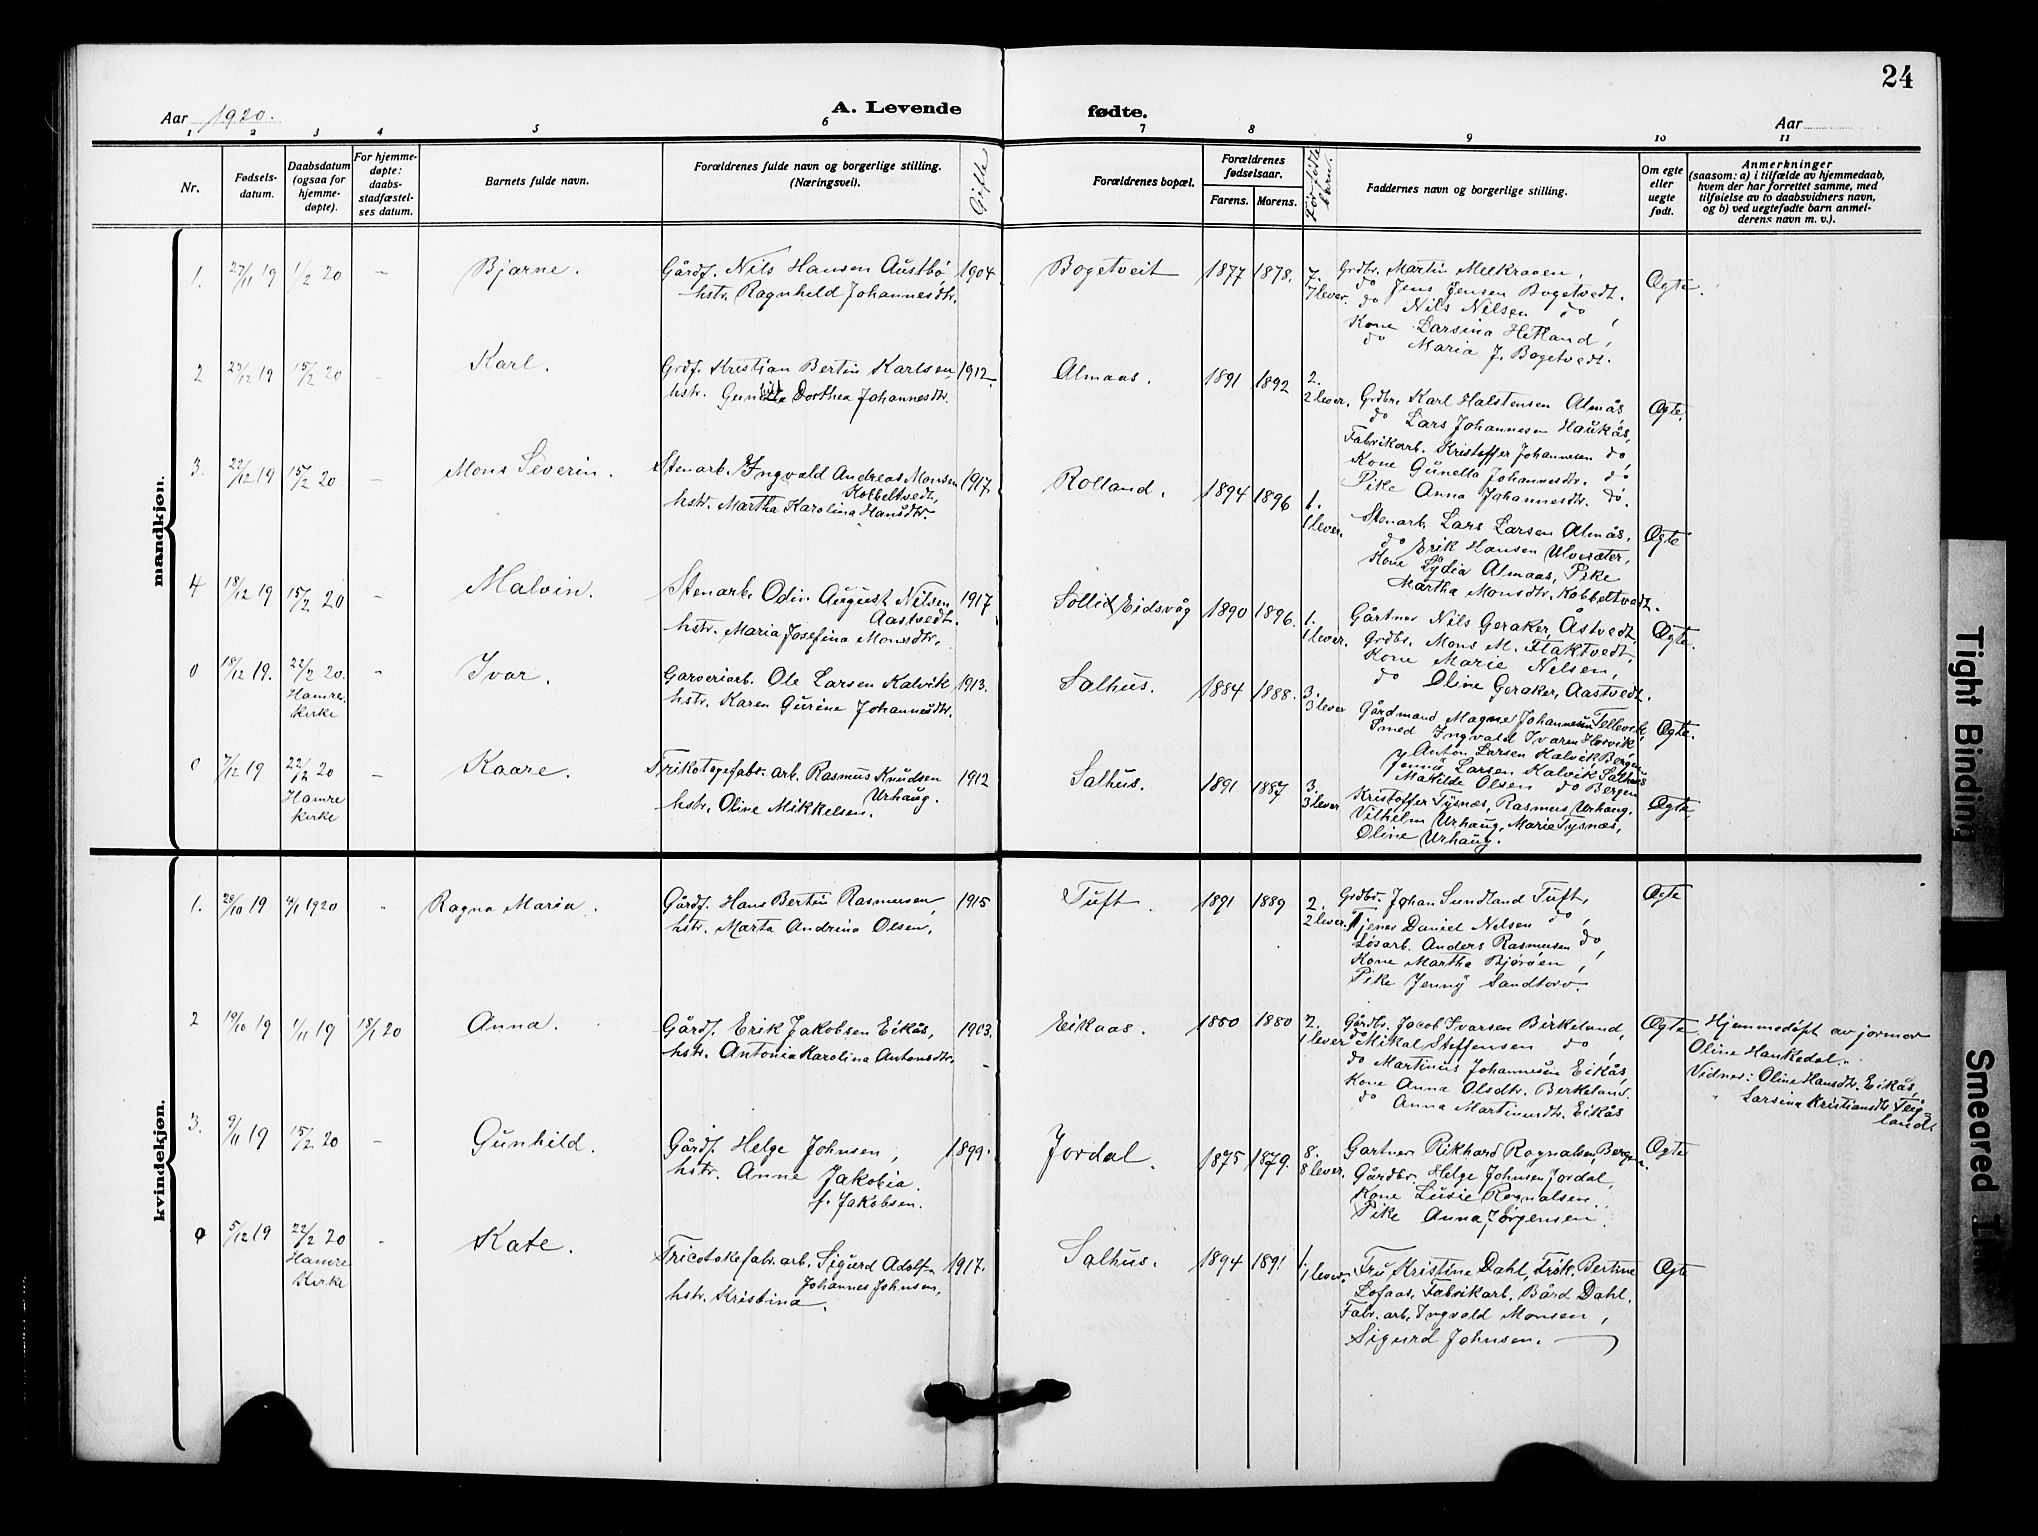 24
Aar 1920.
A. Levende fødte.
Aar
1 2 3 4 5 6 7 8 9 10 11
Nr.
Fødsels-
datum.
Daabsdatum
(ogsaa for
hjemme-
døpte).
For hjemme-
døpte:
daabs-
stadfæstel-
ses datum.
Barnets fulde navn.
Forældrenes fulde navn og borgerlige stilling.
(Næringsvei).
Gifte
Forældrenes bopæl.
Forældrenes
fødselsaar.
Farens. Morens.
Før fødte
børn.
Faddernes navn og borgerlige stilling.
Om egte
eller
uegte
født.
Anmerkninger
(saasom: a) i tilfælde av hjemmedaab,
hvem der har forrettet samme, med
tilføielse av to daabsvidners navn,
og b) ved uegtefødte barn anmel-
derens navn m. v.).
mandkjøn.
1. 27/11 19 1/2 20 - Bjarne. Gårdf. Nils Hansen Austbø 1904 Bogetveit 1877 1878. 7.
hstr. Ragnhild Johannesdtr.
7 lever.
Grdbr. Martin Melkraaen,
do Jens Jensen Bogetvedt.
do Nils Nilsen do,
Kone Larsina Hetland,
do Maria J. Bogetvedt.
Ægte.
2 27/12 19 15/2 20 - Karl. Grdf. Kristian Bertin Karlsen, 1912. Almaas. 1891 1892 2.
hstr. Gunhild Dorthea Johannesdtr.
2 lever.
Grdbr. Karl Halstensen Almås,
do Lars Johannesen Haukås,
Fabrikarb. Kristoffer Johannesen do,
Kone Gunella Johannesdtr. do
Pike Anna Johannesdtr. do.
Ægte.
3. 22/12 19 15/2 20 - Mons Severin. Stenarb. Ingvald Andreas Monsen 1917. Rolland. 1894 1896 1.
Kobbeltvedt,
hstr. Martha Karolina Hansdtr.
1 lever.
Stenarb. Lars Larsen Almås,
do Erik Hansen Ulvesæter,
Kone Lydia Almaas, Pike
Martha Monsdtr. Kobbeltvedt.
Ægte
4 18/12 19 15/2 20 - Malvin. Stenarb. Odin August Nilsen 1917. Sollid, Eidsvåg 1890 1896. 1.
Aastvedt.
hstr. Maria Josefina Monsdtr.
1 lever.
Gårtner Nils Geraker, Åstvedt,
Grdbr. Mons M. Flaktvedt,
Kone Marie Nilsen,
do Oline Geraker, Aastvedt.
Ægte.
0 18/12 19. 22/2 20. - Ivar. Garveriarb. Ole Larsen Kalvik 1913. Salhus. 1884 1888. 3.
Hamre
kirke
hstr. Karen Gurine Johannesdtr.
3 lever
Gårdmand Magnus Johannesen Tellevik,
Smed Ingvald Ivaren Hervik,
Anton Larsen Kalvik, Bergen
Jenny Larsen Kalvik Salhus
Matilde Olsen do Bergen
Ægte.
0 7/12 19 22/2 20 - Kaare. Trikotagefabr. arb. Rasmus Knudsen 1912 Salhus. 1891 1887 3.
Hamre
kirke
Urhaug.
hstr. Oline Mikkelsen.
3 lever
Kristoffer Tysnæs, Rasmus Urhaug,
Vilhelm Urhaug, Marie Tysnæs,
Oline Urhaug.
Ægte
kvindekjøn.
1. 28/10 19 4/1 1920 - Ragna Maria. Gårdf. Hans Bertin Rasmusen, 1915 Tuft. 1891 1889 2.
hstr. Marta Andrina Olsen,
2 lever.
Grdbr. Johan Sundland Tuft,
Tjener Daniel Nilsen do,
Løsarb. Anders Rasmusen do,
Kone Martha Bjørøen,
Pike Jenny Sandtorv.
Ægte
2 19/10 19 1/11 19 18/1 20 Anna. Gårdf. Erik Jakobsen Eikås, 1903. Eikaas. 1880 1880 2.
hstr. Antonia Karolina Antonsdtr.
1 lever
Gårdbr. Jacob Ivarsen Birkeland,
do Mikal Steffensen do,
do Martinus Johannesen Eikås,
Kone Anna Olsdtr. Berkeland.
do Anna Martinusdtr. Eikås
Ægte
Hjemmedøpt av jormor
Oline Haukedal.
Vidner: Oline Hansdtr. Eikås,
" Larsina Kristiansdtr. Teig-
land.
3. 9/11 19 15/2 20 - Gunhild. Gårdf. Helge Johnsen, 1899. Jordal. 1875 1879. 8.
hstr. Anne Jakobia.
f. Jakobsen.
8 lever.
Gartner Rikhard Ragnalsen, Bergen.
Gårdbr. Helge Johnsen Jordal,
Kone Lusie Ragnalsen
Pike Anna Jørgensen.
Ægte
0 5/12 19 22/2 20 - Kate. Tricotokefabr. arb. Sigurd Adolf 1917. Salhus. 1894 1891 1.
Hamre
Kirke
Johannes Johnsen,
hstr. Kristina.
1 lever.
Fru Kristine Dahl, Frøk. Bertine
Lofaas, Fabrikarb. Bård Dahl,
Fabr. arb. Ingvald Monsen,
Sigurd Johnsen.
Ægte
Tight Binding
Smeared